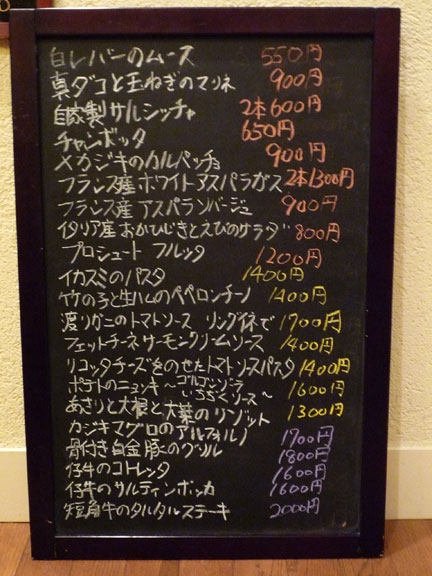 白レバーのムース 550円
真ダコと玉ねぎのマリネ 900円
自家製サルシッチャ 2本600円
チャンボッタ 650円
メカジキのカルパッチョ 900円
フランス産ホワイトアスパラガス 2本1300円
フランス産アスパラソバージュ 900円
イタリア産おかひじきとえびのサラダ 800円
プロシュート フルッタ 1200円
イカスミのパスタ 1400円
竹の子と生ハムのペペロンチーノ 1400円
渡りガニのトマトソース リングイネで 1700円
フェットチーネサーモンクリームソース 1400円
リコッタチーズをのせたトマトソースパスタ 1400円
ポテトのニョッキ 〜ゴルゴンゾーラいちぢくソース〜 1600円
あさりと大根と大葉のリゾット 1300円
カジキマグロのアルフォルノ 1700円
骨付き白金豚のグリル 1800円
仔牛のコトレッタ 1600円
仔牛のサルティンボッカ 1600円
短角牛のタルタルステーキ 2000円